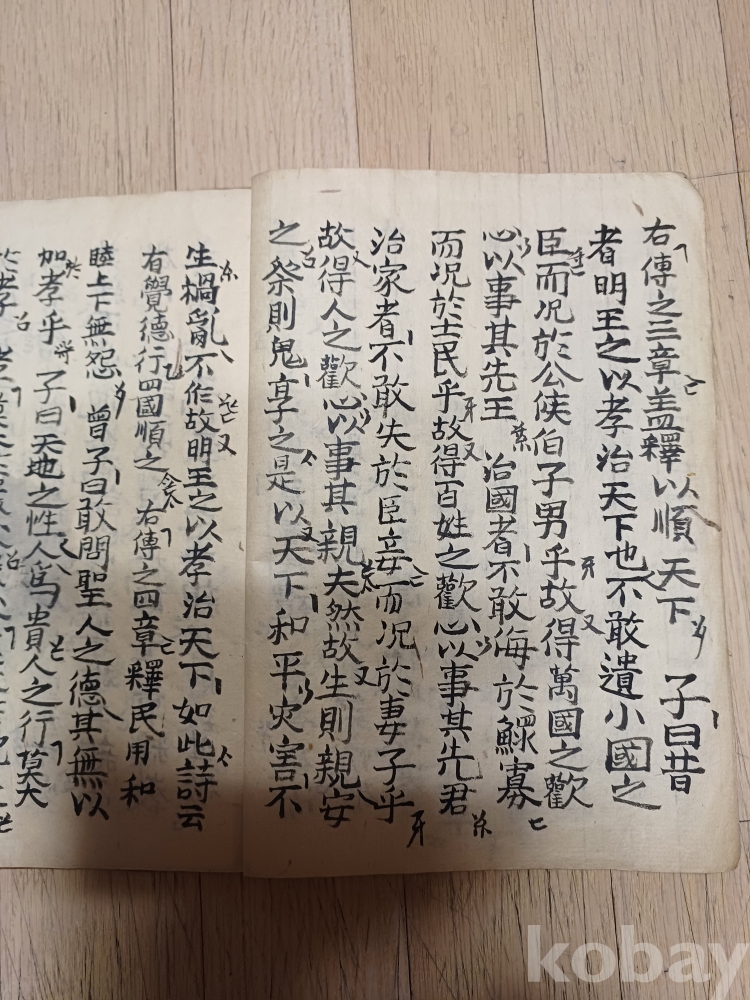 右傳之三章盖釋以順天下 子曰昔
者明王之以孝治天下也不敢遺小國之
臣而况於公侯伯子男乎故得萬國之歡
心以事其先王 治國者不敢侮於鰥寡
而况於士民乎故得百姓之歡心以事其先君
治家者不敢失於臣妾而况於妻子乎
故得人之歡心以事其親夫然故生則親安
之祭則鬼享之是以天下和平灾害不
生禍亂不作故明王之以孝治天下如此詩云
有覺德行四國順之 右傳之四章釋民用和
睦上下無怨 曾子曰敢問聖人之德其無以
加孝乎 子曰天地之性人爲貴人之行莫大
於孝
kobay